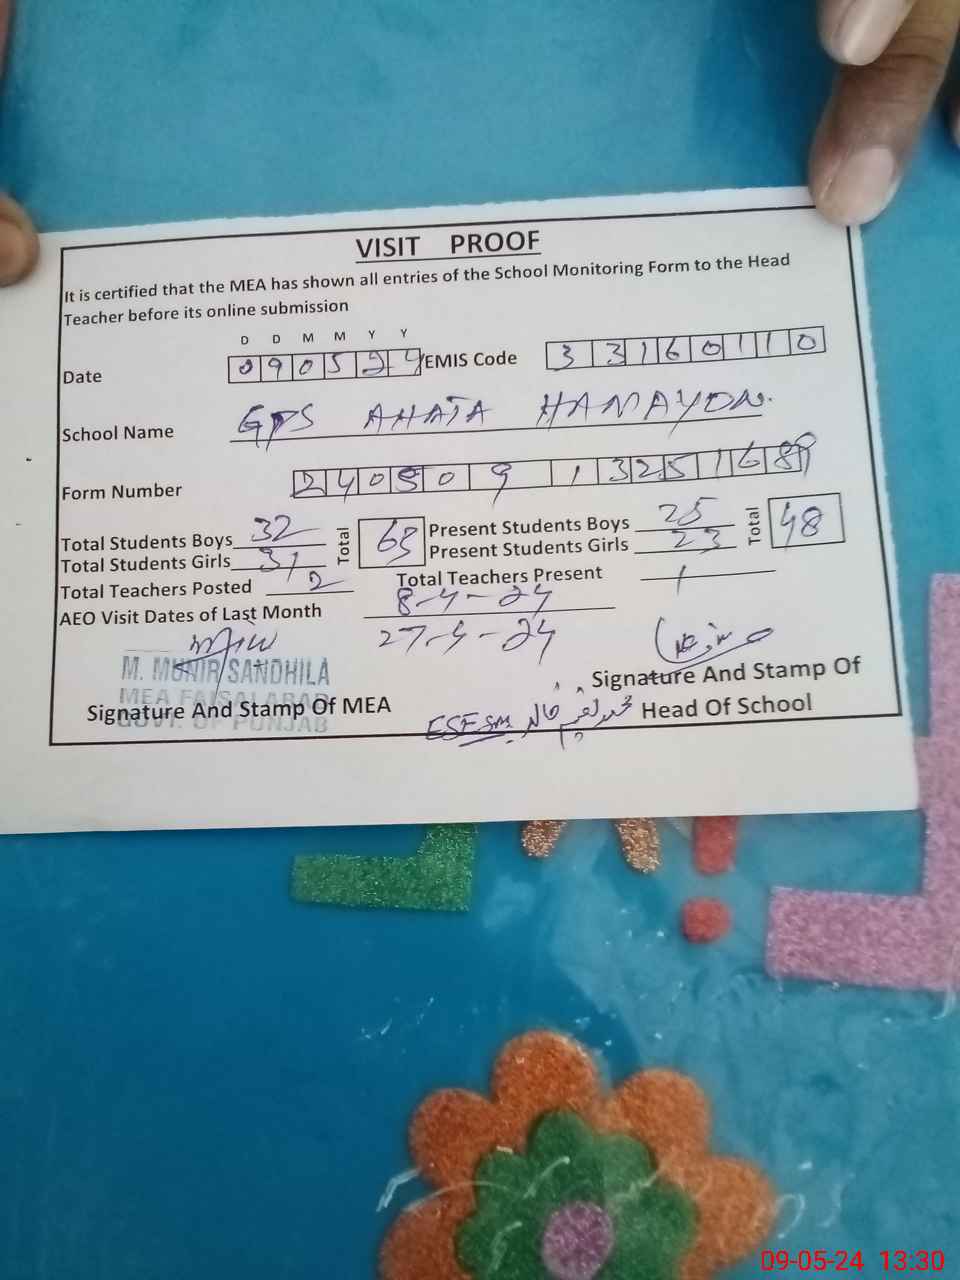 VISIT PROOF
It is certified that the MEA has shown all entries of the School Monitoring Form to the Head
Teacher before its online submission
D D M M Y Y
Date 090524 EMIS Code 33160110
School Name GPS AHATA HAMAYON.
Form Number
Total Students Boys 32 Total 63 Present Students Boys 25 Total 48
Total Students Girls 31 Present Students Girls 23
Total Teachers Posted 2 Total Teachers Present 1
AEO Visit Dates of Last Month 8-4-24
27-4-24
M. MUNIR SANDHILA
MEA FAISALABAD
GOVT. OF PUNJAB
Signature And Stamp Of MEA
Signature And Stamp Of
Head Of School
09-05-24 13:30